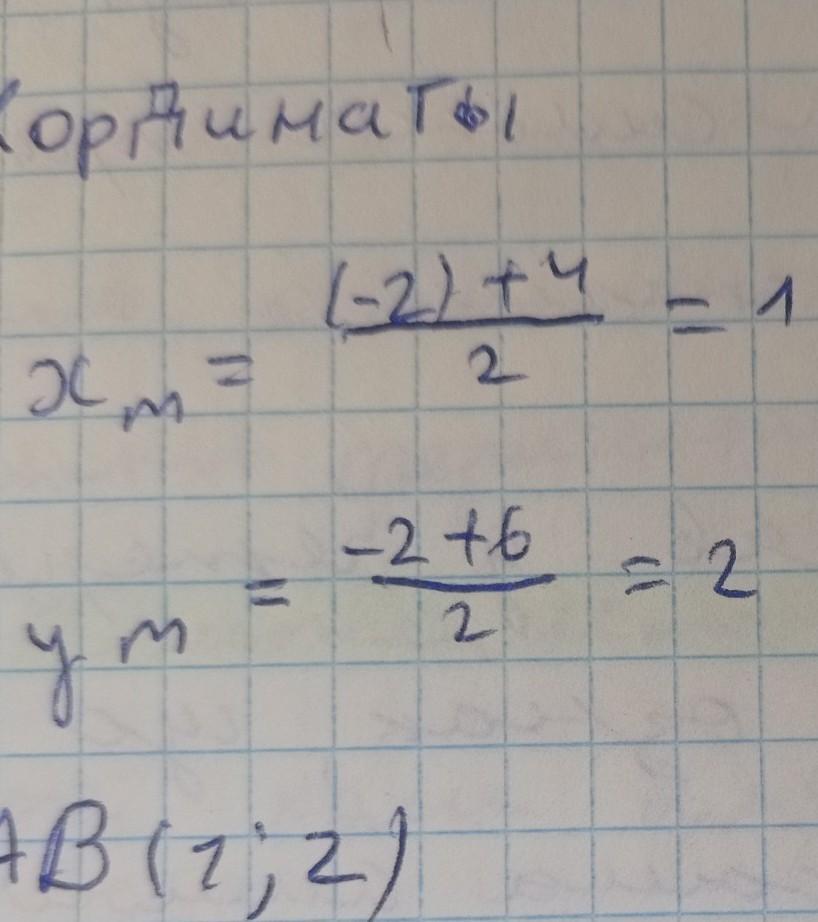 Кординаты
x_m = \frac{(-2)+4}{2} = 1
y_m = \frac{-2+6}{2} = 2
AB (1; 2)